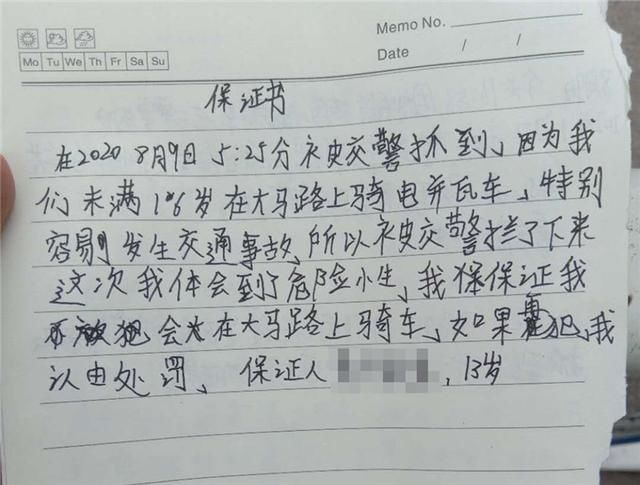 Memo No.
Date / /
Mo Tu We Th Fr Sa Su
保证书
在2020 8月9日 5:25分被交警抓到、因为我
们未满16岁在大马路上骑电瓶车、特别
容易发生交通事故,所以被交警拦了下来
这次我体会到了危险性、我保证我
不会在大马路上骑车、如果再犯,我
认由处罚、 保证人 , 13岁